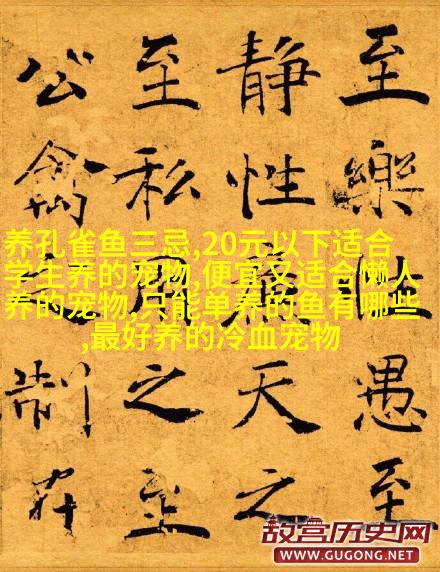 至樂性愚至
靜性廉天之
至私用之至
公禽之制在
养孔雀鱼三忌,20元以下适合
学生养的宠物,便宜又适合懒人
养的宠物,只能单养的鱼有哪些
,最好养的冷血宠物
故宫历史网
WWW.GUGONG.NET